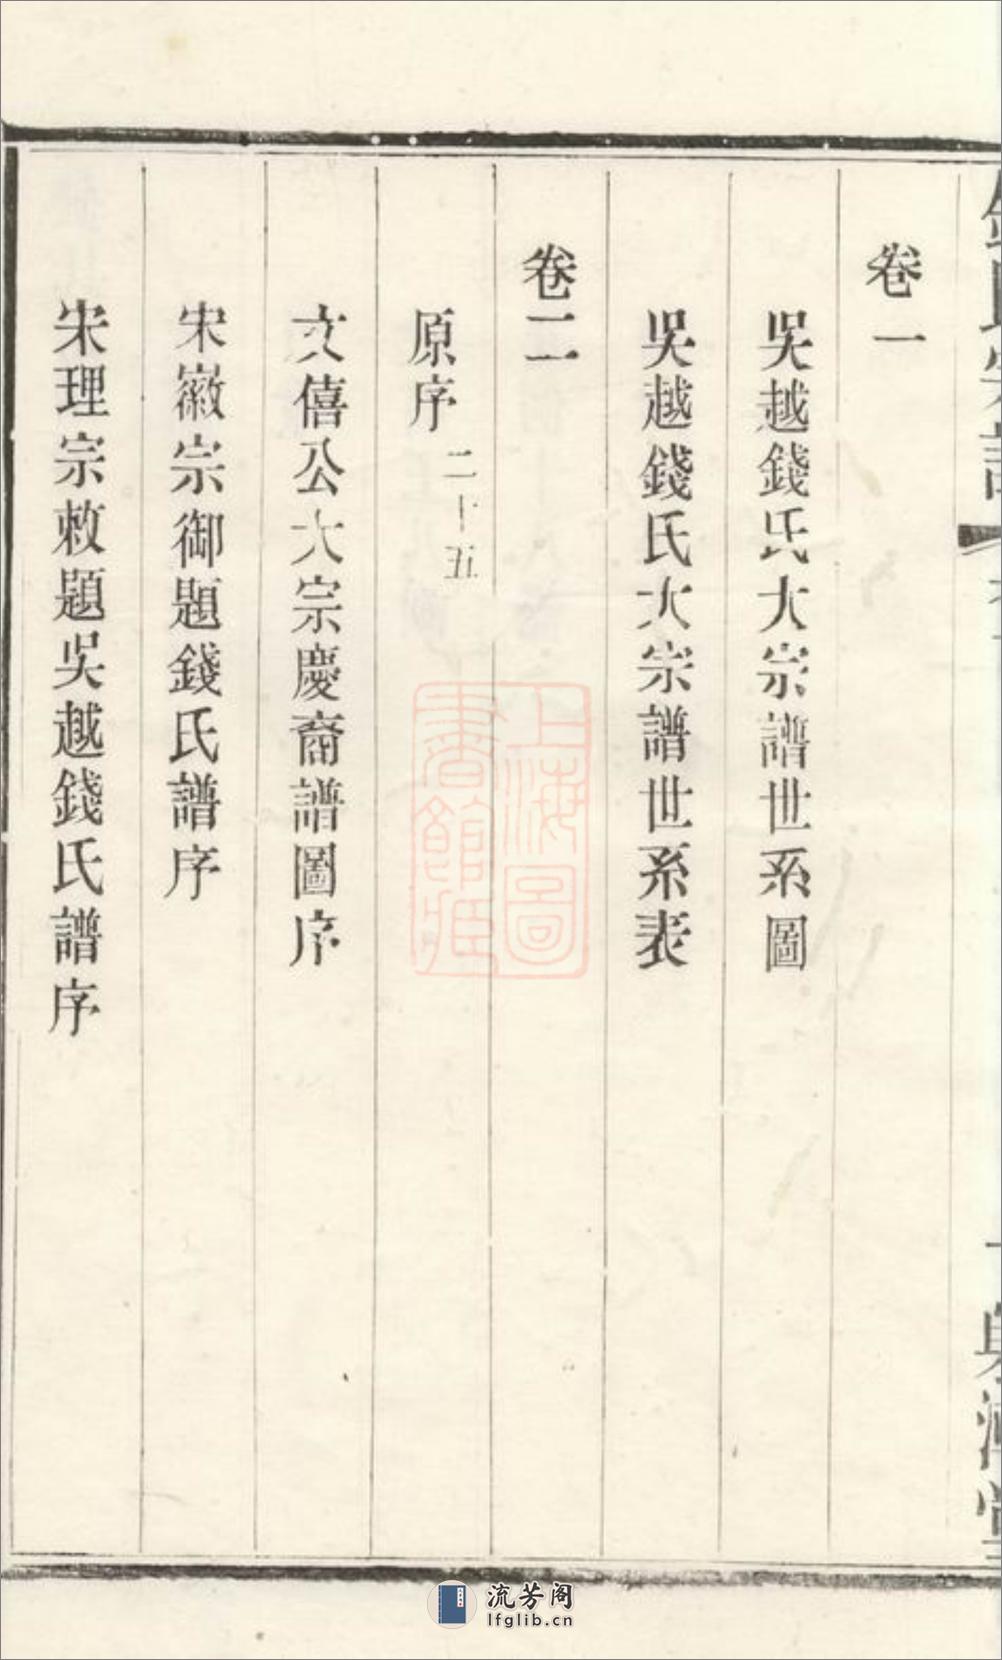 卷一
吳越錢氏大宗譜世系圖
吳越錢氏大宗譜世系表
卷二
原序 二十五
文僖公大宗慶裔譜圖序
宋徽宗御題錢氏譜序
宋理宗敕題吳越錢氏譜序
上海圖書館藏
流芳阁
lfglib.cn